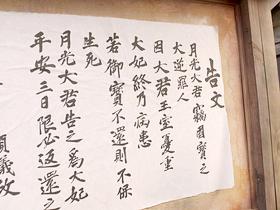 告文
月光大君竊國寶之
大逆罪人
因大君王室憂重
大妃終乃病患
若御寶不還則不保
生死
月光大君告之為大妃
平安三日限必返還之